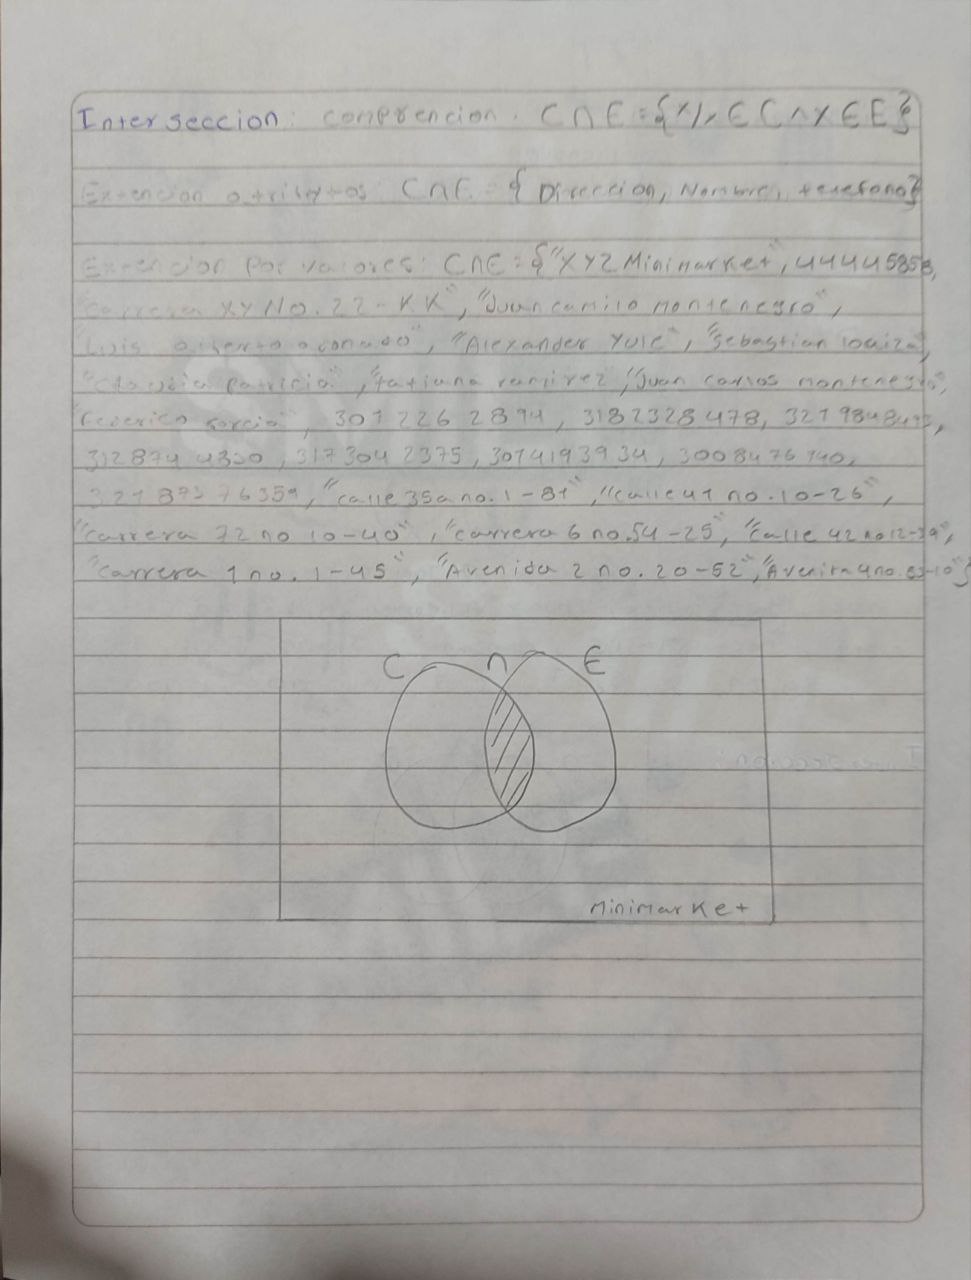 Interseccion: comprencion. C∩E={x/x∈C∧x∈E}
Extencion atributos: C∩E={Direccion, Nombre, telefono}
Extencion por valores: C∩E={"XYZ Minimarket", 44445858,
"carrera XY No. 22-KK", "Juan camilo montenegro",
"Luis alberto ", "Alexander Yule", "sebastian loaiza",
"Claudia patricia", "tatiana ramirez", "Juan carlos montenegro",
"Federico garcia", 301 226 2894, 3182328478,
312874 4320, 317304 2375, 3014193934, 3008476140,
"calle 35a no. 1-81", "calle 41 no. 10-26",
"carrera 72 no 10-40", "carrera 6 no.54-25", "calle 42 no
"carrera 1 no. 1-45", "Avenida 2 no. 20-52",
C ∩ E
Minimarket